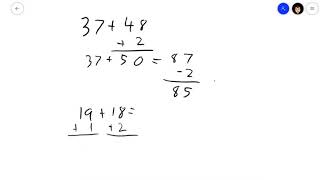 37 + 48
+ 2
37 + 50 = 87
- 2
85
19 + 18 =
+ 1 + 2